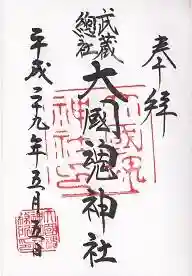 奉拝
武蔵
總社
大國魂神社
平成二十九年五月五日